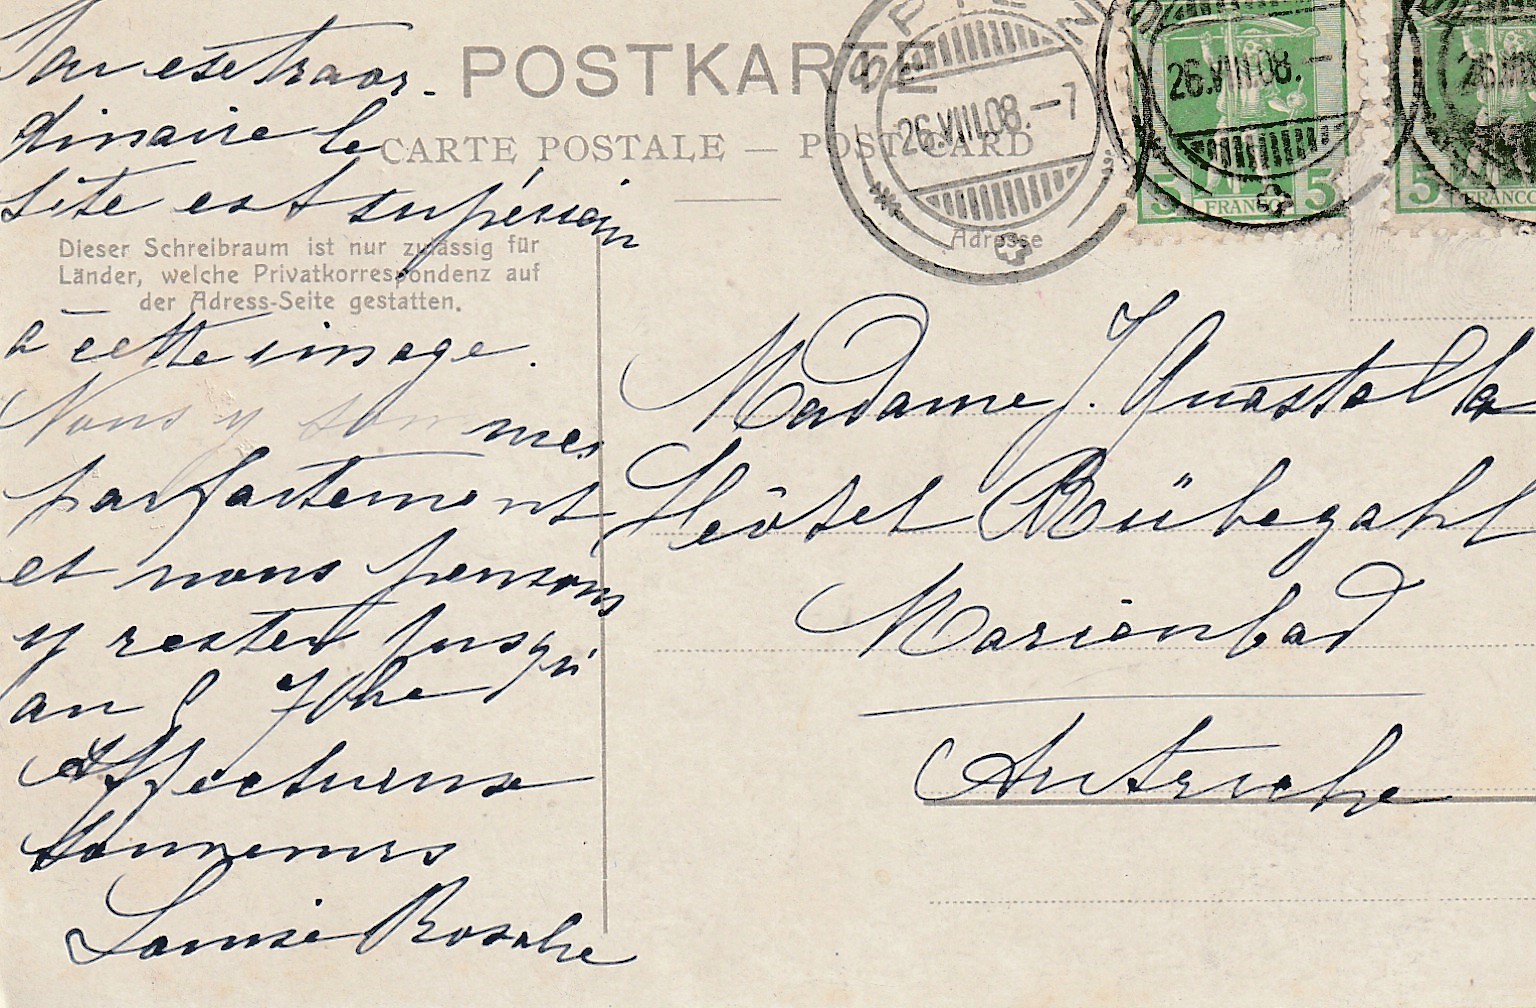 POSTKARTE
CARTE POSTALE — POST CARD
SPIN
26.VIII.08.-7
26.VIII.08.-
5 FRANCO 5
5 FRANCO
Dieser Schreibraum ist nur zulässig für
Länder, welche Privatkorrespondenz auf
der Adress-Seite gestatten.
Adresse
extraor-
dinaire le
site est supérieur
à cette image.
Nous y sommes
parfaitement
et nous pensons
y rester jusqu'
au 8 7bre
Affectueux
souvenirs
Louise
Madame J. Quastalla
Hôtel Rübezahl
Marienbad
Autriche